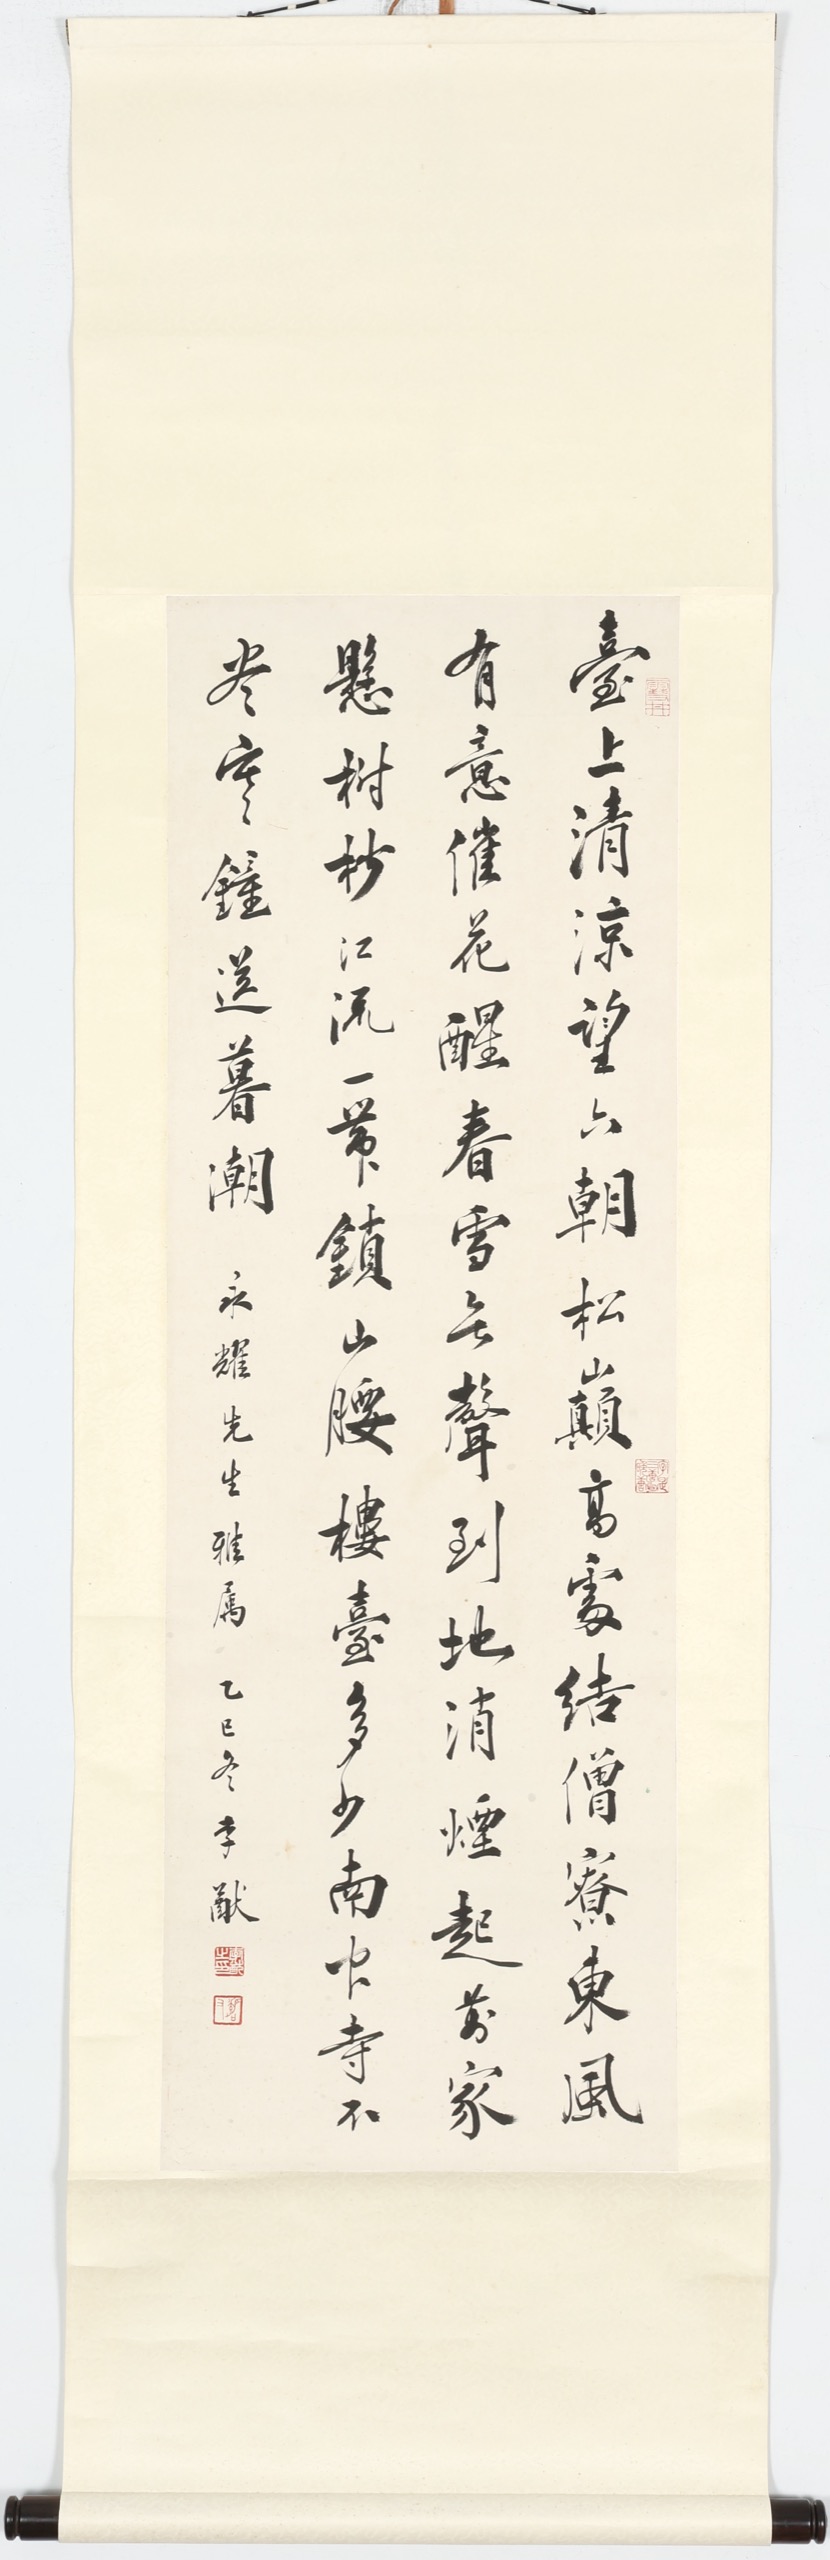 臺上清涼望六朝松巔高處結僧寮東風
有意催花醒春雪無聲到地消煙起萬家
懸樹杪江流一帶鎖山腰樓臺多少南中寺不
盡寒鐘送暮潮
永耀先生雅属 乙巳冬李猷